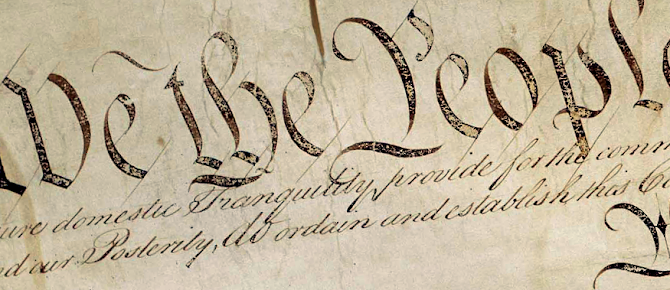 We the People
ure domestic Tranquility, provide for the comm
nd our Posterity, do ordain and establish this Co